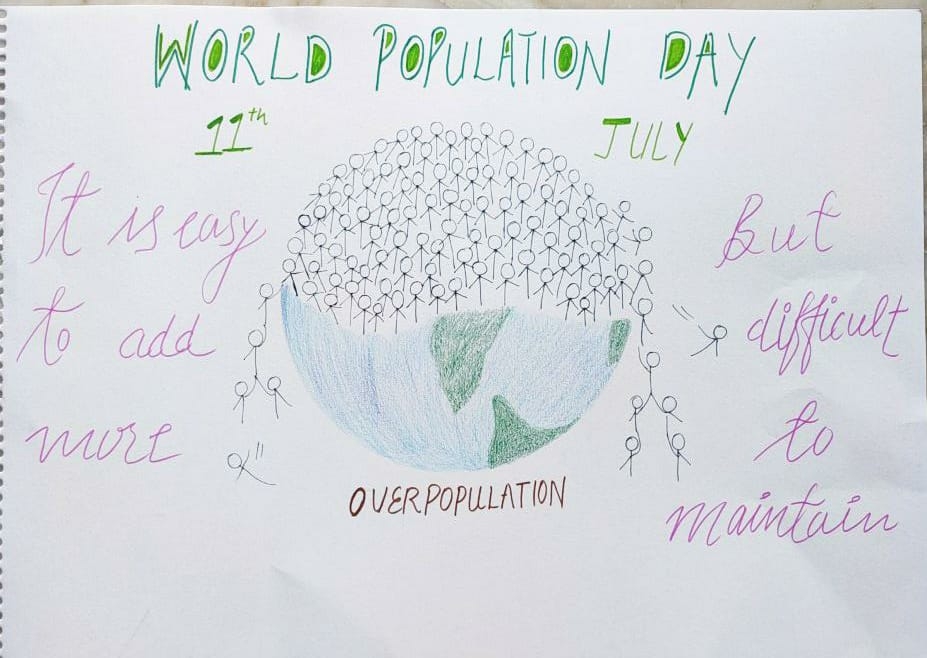 WORLD POPULATION DAY
11th JULY
It is easy
to add
more
But
difficult
to
maintain
OVERPOPULATION